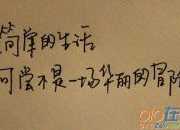 简单的生活
何尝不是一场华丽的冒险